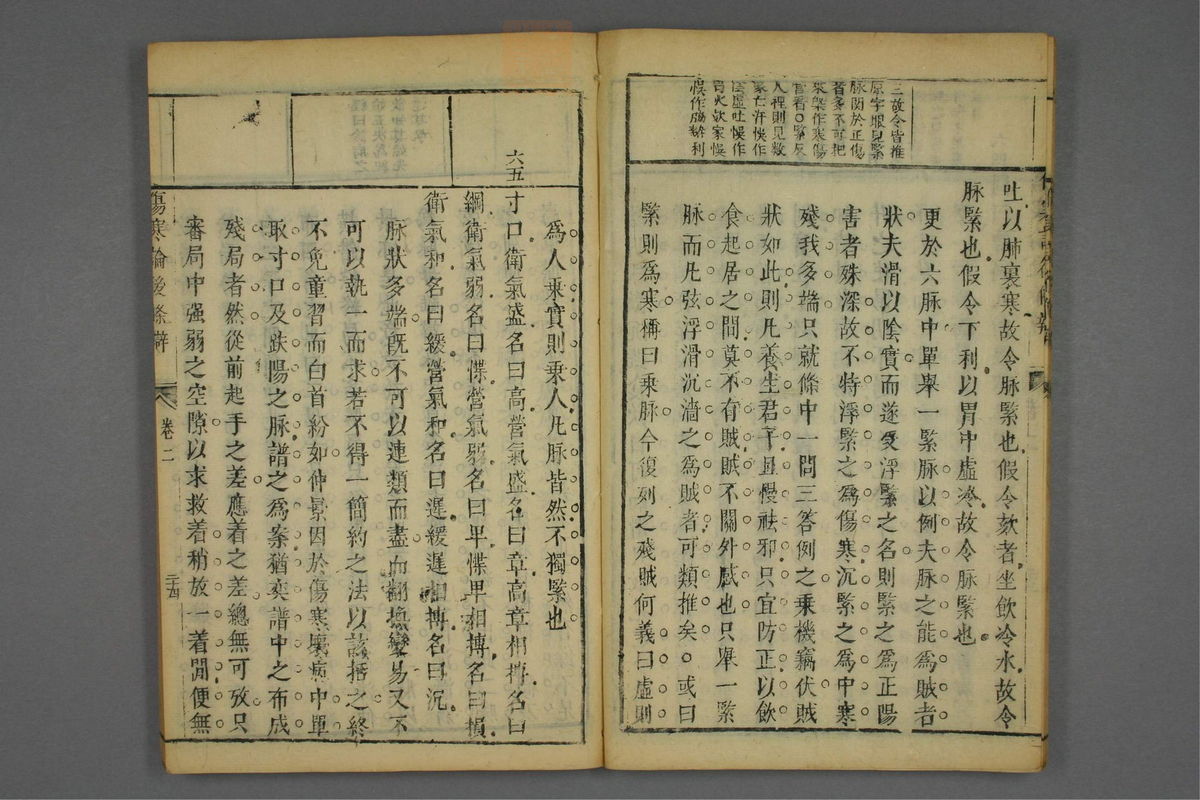 三故令皆推
原字眼見緊
脉関於正傷
者多不可把
緊槩作寒傷
寒看○緊反
入裡則見数
家亡汗悮作
陰虛吐悮作
胃火欬家悮
悮作腸癖利
吐以肺裏寒故令脉緊也假令欬者坐飲冷水故令
脉緊也假令下利以胃中虛冷故令脉緊也
更於六脉中單舉一緊脉以例夫脉之能為賊者
狀夫滑以陰實而遂受浮緊之名則緊之為正陽
害者殊深故不特浮緊之為傷寒沉緊之為中寒
殘我多端只就條中一問三答例之乗機竊伏賊
狀如此則凡養生君子且慢祛邪只宜防正以飲
食起居之間莫不有賊賊不關外感也只舉一緊
脉而凡弦浮滑沉濇之為賊者可類推矣○或曰
緊則為寒稱曰乗脉今復列之殘賊何義曰虛則
為人乗實則乗人凡脉皆然不獨緊也
六五
寸口衛氣盛名曰高營氣盛名曰章高章相搏名曰
綱衛氣弱名曰惵營氣弱名曰卑惵卑相搏名曰損
衛氣和名曰緩營氣和名曰遲緩遲相搏名曰沉
脉狀多端旣不可以連類而盡而翻換變易又不
可以執一而求若不得一簡約之法以該括之終
不免童習而白首紛如仲景因於傷寒壞病中單
取寸口及趺陽之脉譜之為案猶奕譜中之布成
殘局者然從前起手之差應着之差總無可攷只
審局中强弱之空隙以求救着稍放一着閒便無
傷寒論後條辯
卷二